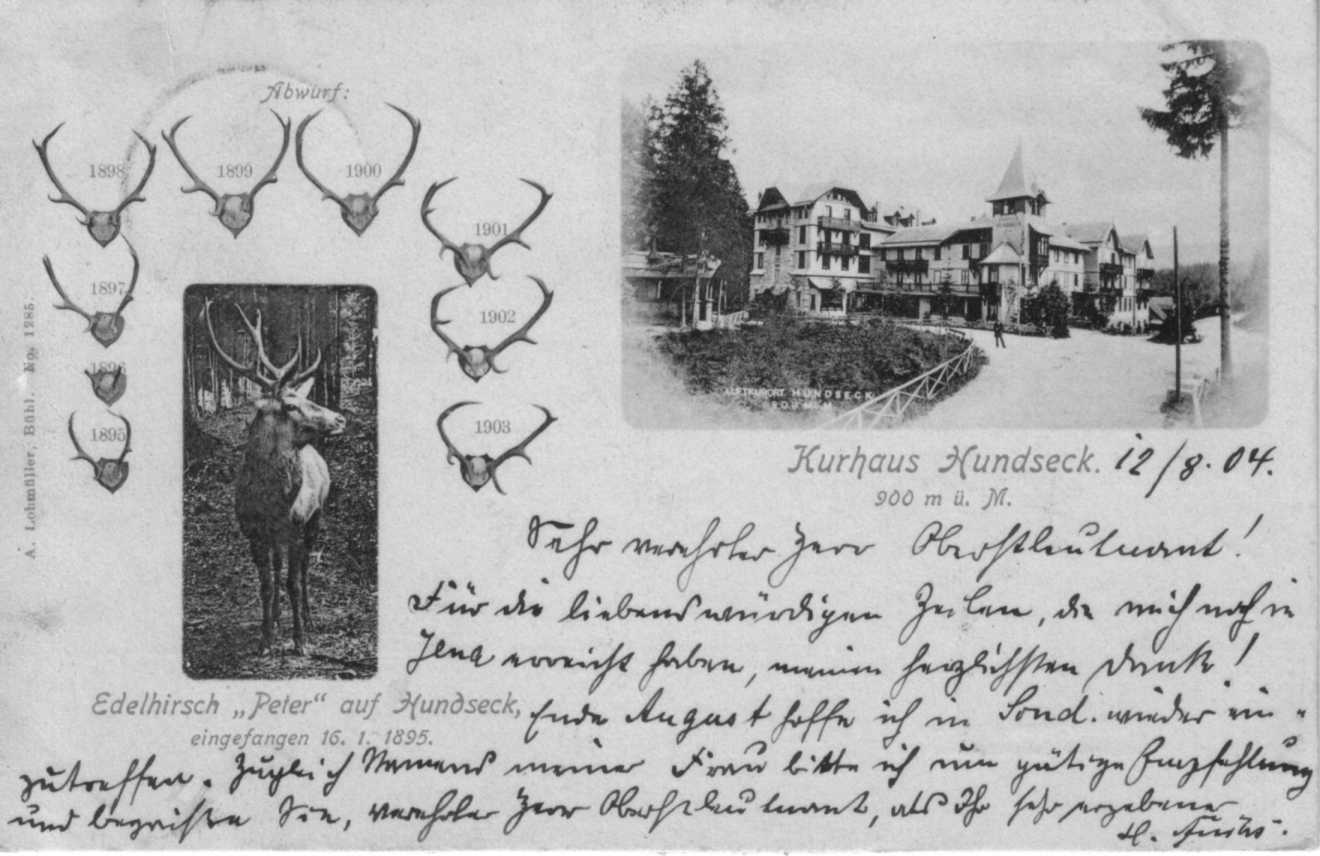 Abwurf:
1898
1899
1900
1901
1897
1902
1896
1895
1903
A. Lohmüller, Bühl. No. 1285.
LUFTKURORT HUNDSECK
900 M.ü.M.
Kurhaus Hundseck. 12/8. 04.
900 m ü. M.
Sehr verehrter Herr Oberstleutnant!
Für die liebenswürdigen Zeilen, die mich noch in
Jena erreicht haben, meinen herzlichsten Dank!
Edelhirsch „Peter“ auf Hundseck,
eingefangen 16. 1. 1895.
Ende August hoffe ich in Sond. wieder ein-
zutreffen. Zugleich Namens meiner Frau bitte ich um gütige Empfehlung
und begrüße Sie, verehrter Herr Oberstleutnant, als Ihr sehr ergebener
H.